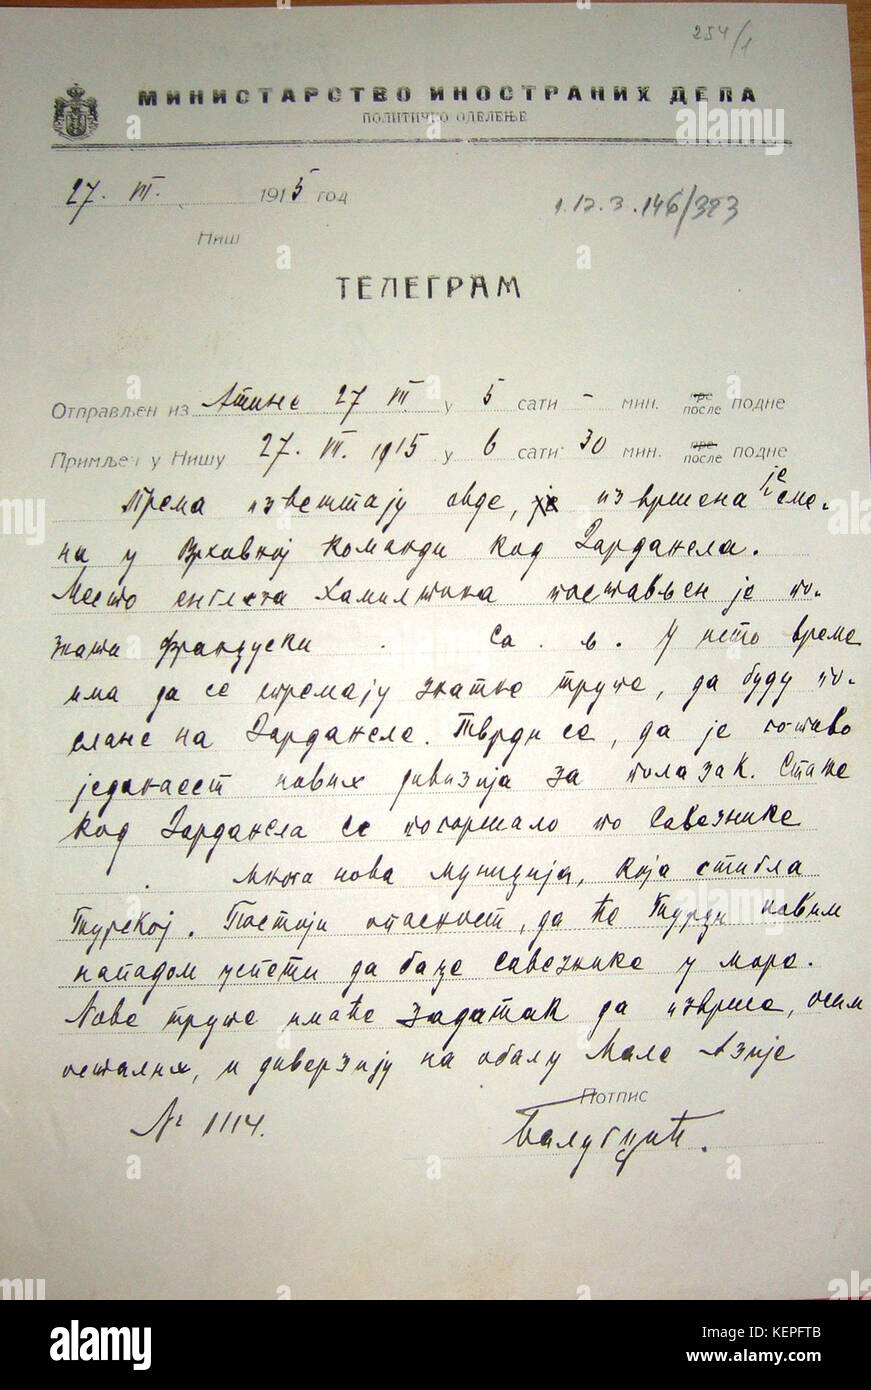 254/1
МИНИСТАРСТВО ИНОСТРАНИХ ДЕЛА
ПОЛИТИЧКО ОДЕЛЕЊЕ
27. VII. 1915 год
1.12.3.146/323
Ниш
ТЕЛЕГРАМ
Отправљен из Атине 27 VII у 5 сати - мин. пре после подне
Примљен у Нишу 27. VII. 1915 у 6 сати 30 мин. пре после подне
Према извештају овде, је извршена је сме-
на у Врховној Команди код Дарданела.
Место енглеза Хамилтона постављен је по-
знати француски . Са . в. У исто време
има да се спремају знатне трупе, да буду по-
слане на Дарданеле. Тврди се, да је готово
једанаест нових дивизија за полазак. Стање
код Дарданела се погоршало по Савезнике
. многа нова муниција, која стигла
Турској. Постоји опасност, да ће Турци новим
нападом успети да баце Савезнике у море.
Нове трупе имаће задатак да изврше, осим
осталих, и диверзију на обалу Мале Азије
Потпис
№ 1114.
Балугџић.
alamy
Image ID: KEPFTB
www.alamy.com